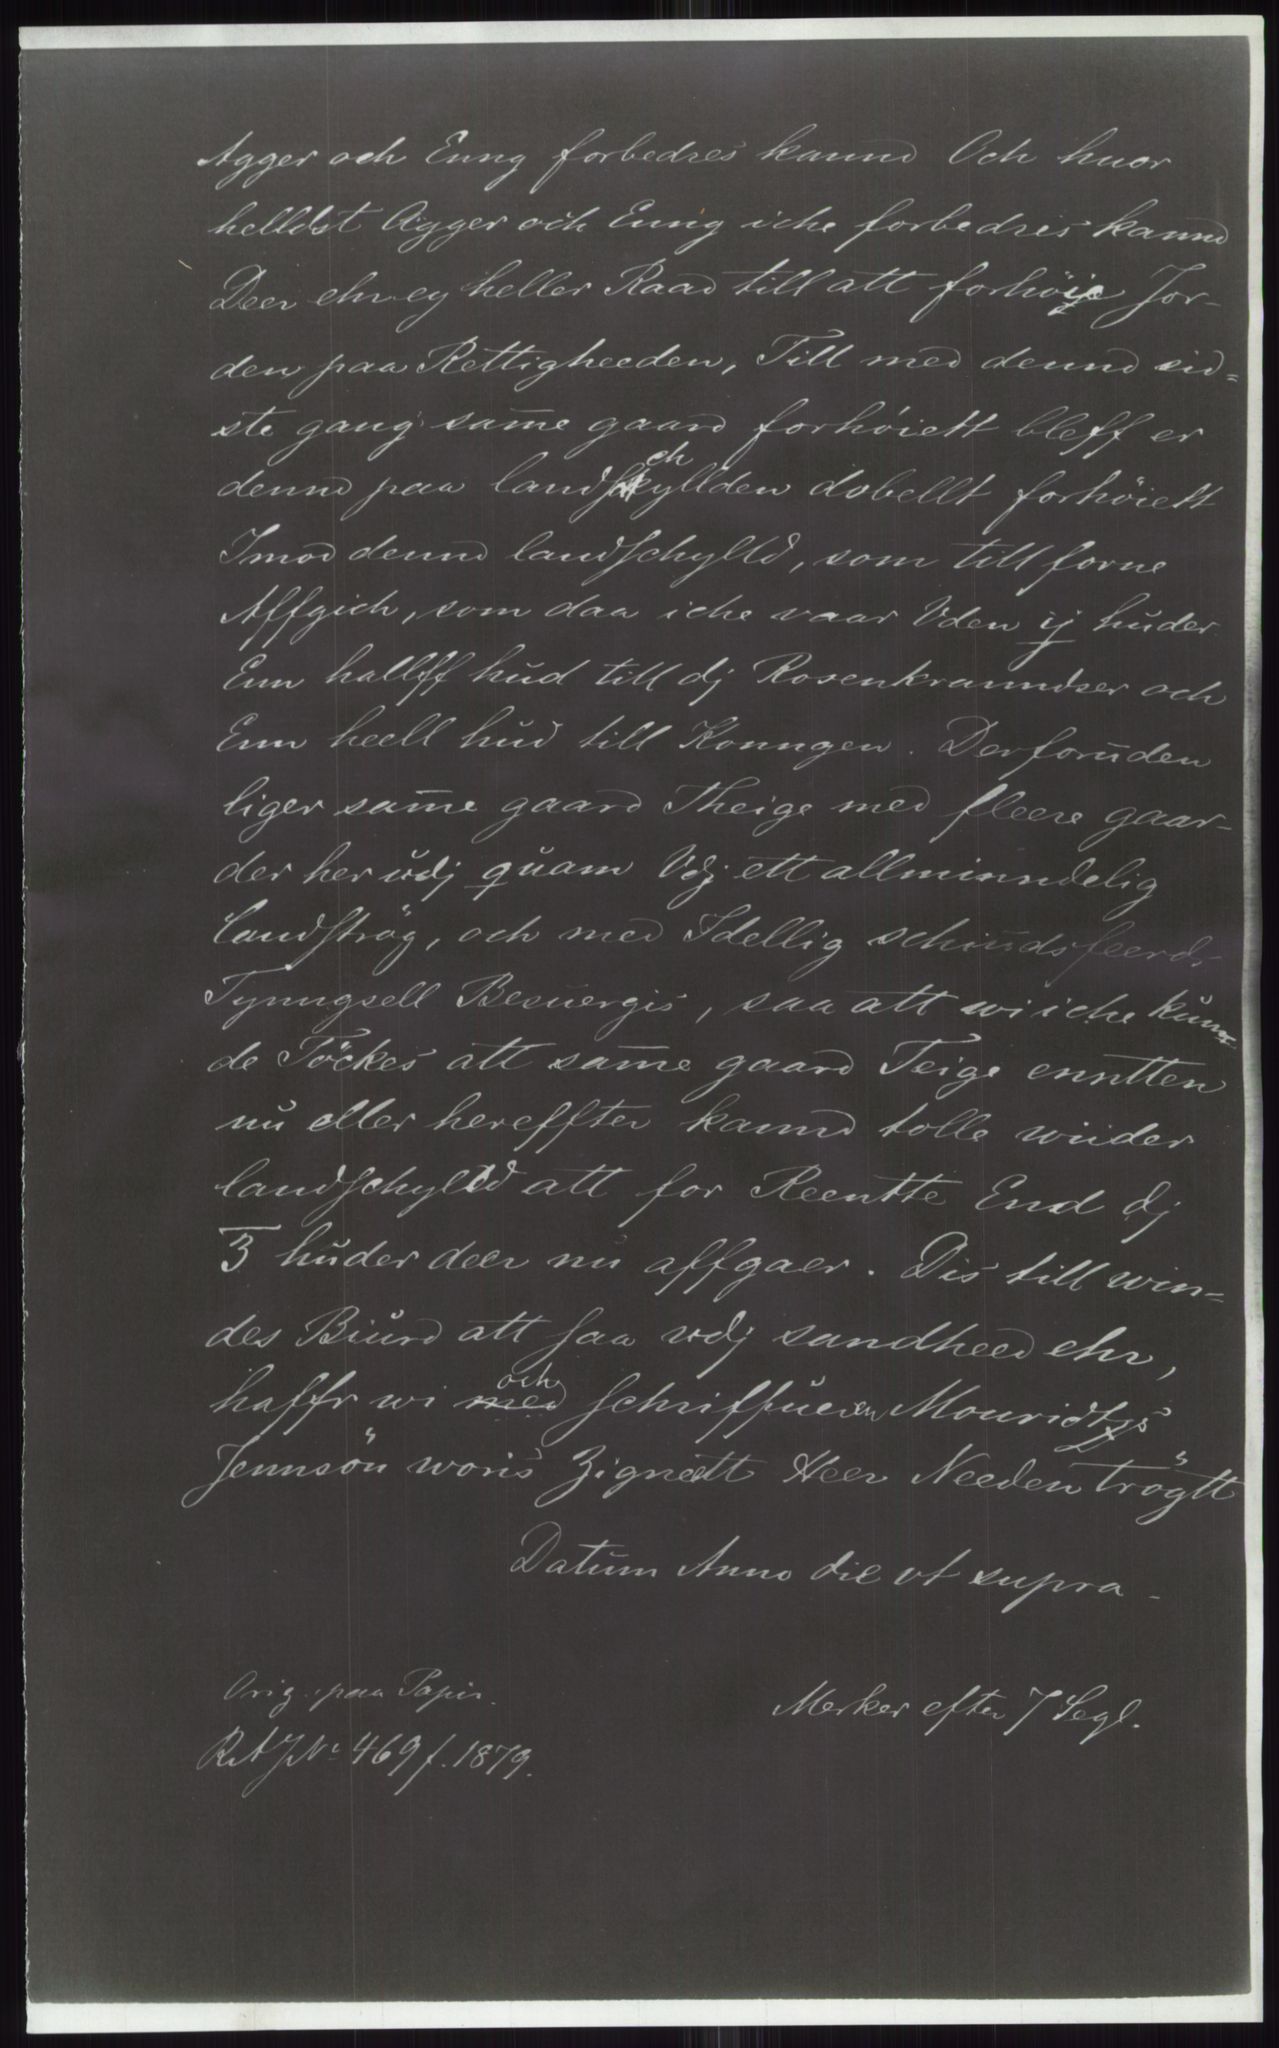 Agger och Enng forbedres kannd Och huor
helldst Agger och Enng iche forbedris kannd
Deer ehr ey heller Raad till att forhøie Jor-
den paa Rettigheeden, Till med dennd sid=
ste gang same gaard forhöiett bleff er
dennd paa landschyllden dobellt forhöiett
Imod dennd landschylld, som till forne
Affgich, som daa iche vaar Uden ij huder
Enn hallff hud till dj Rosenkranndser och
Enn heell hud till Konngen. Derforuden
liger same gaard Theige med fleere gaar-
der her udj quam Vdj ett allminndelig
landströg, och med Idellig schiudsfeerds
Tynngsell Besuergis, saa att wi iche kunn-
de Töckes att same gaard Teige enntten
nu eller hereffter kannd tolle wiider
landschylld att for Reentte End dj
3 huder deer nu affgaer. Dis till win-
des Biurd att saa vdj sandheed ehr,
haffr wi med och schriffueren Mouridtzs
Jennsön woris Zignett Heer Needen trögtt
Datum Anno die vt supra -
Orig. paa Papir.
Merker efter 7 Segl.
RA J No 469 f. 1879.